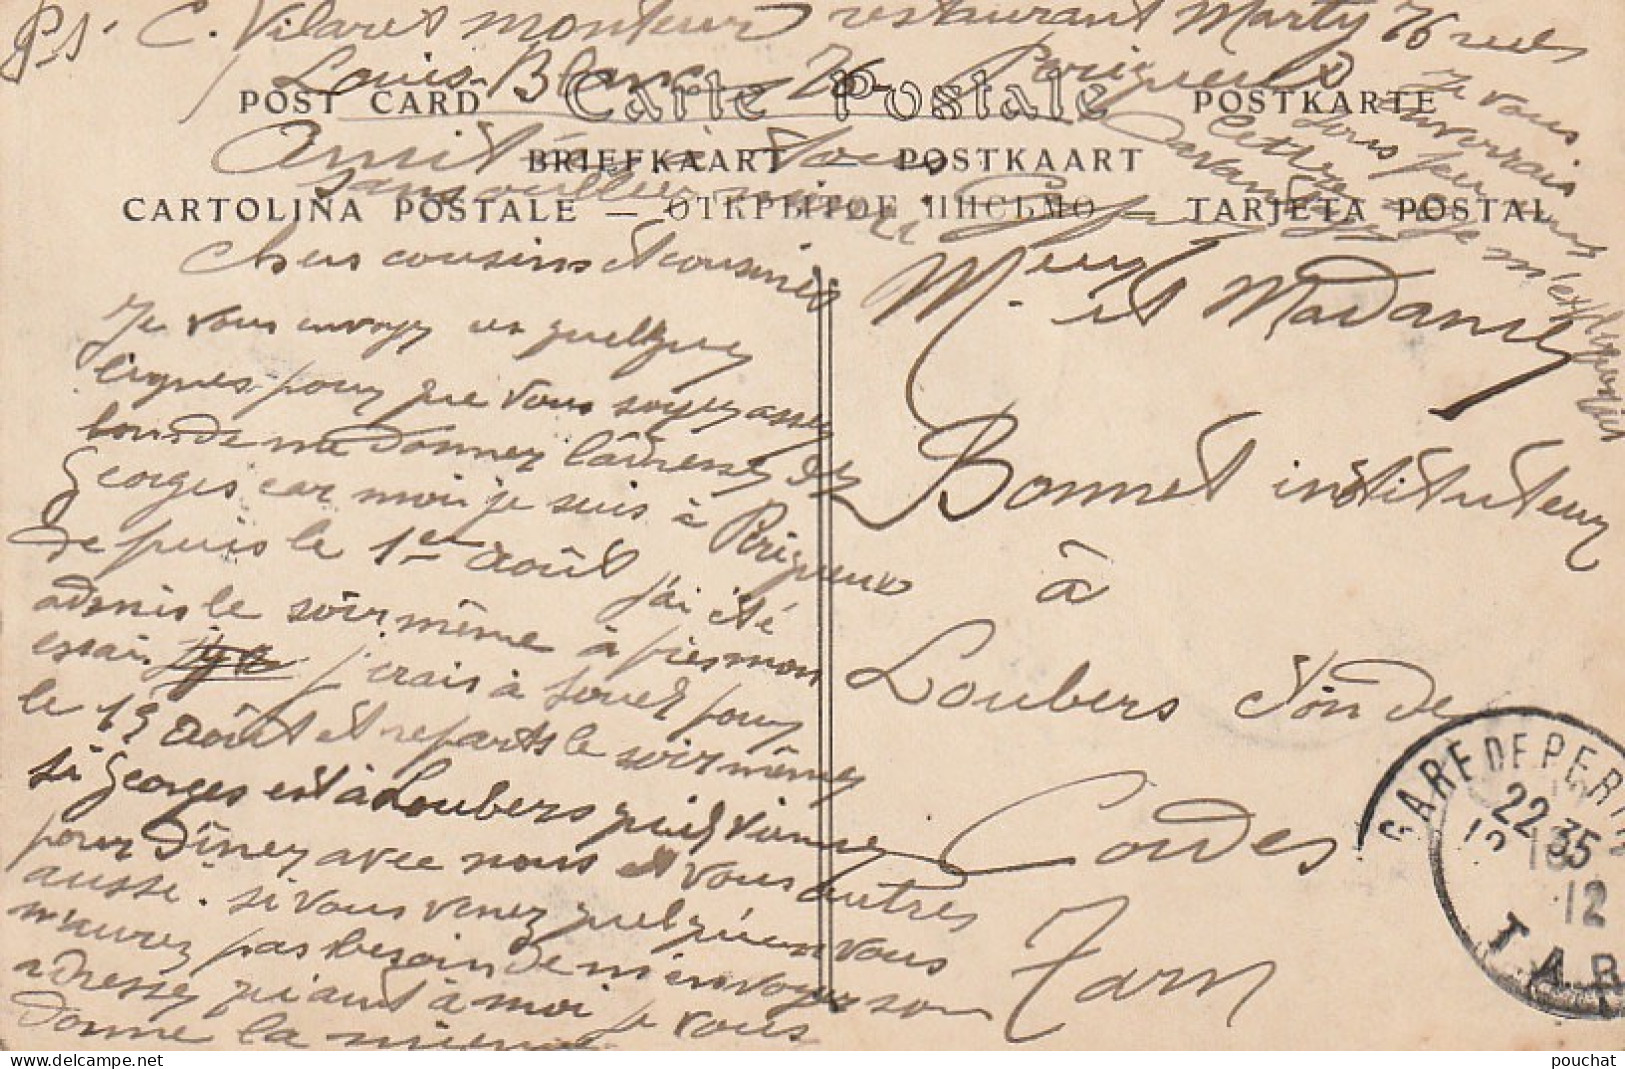 PS. C. Vilaret monteur restaurant Marty 76 rue
Louis-Blanc 76 Périgueux
POST CARD Carte Postale POSTKARTE
Amitiés à tous
BRIEFKAART — POSTKAART
sans oublier
CARTOLINA POSTALE — ОТКРЫТОЕ ПИСЬМО — TARJETA POSTAL
Je vous
enverrais
Lettre
davantage
je m'expliquerais
chers cousins et cousines
Je vous envoye ces quelques
lignes pour que vous soyez assez
bons de me donner l'adresse de
Georges car moi je suis à Périgueux
depuis le 1er août j'ai été
admis le soir même à
essai j'erais à pour
le 15 août et reparts le soir même
si Georges est à Loubers qu'il vienne
pour dîner avec nous et vous autres
aussi. si vous venez quelqu'un vous
n'aurez pas besoin de m'envoyer son
adresse quant à moi je vous
donne la mienne
Mr. et Madame
Bonnet instituteur
à
Loubers
Cordes
Tarn
GARE DE PERI
22 35
12
12
TAR
pouchat